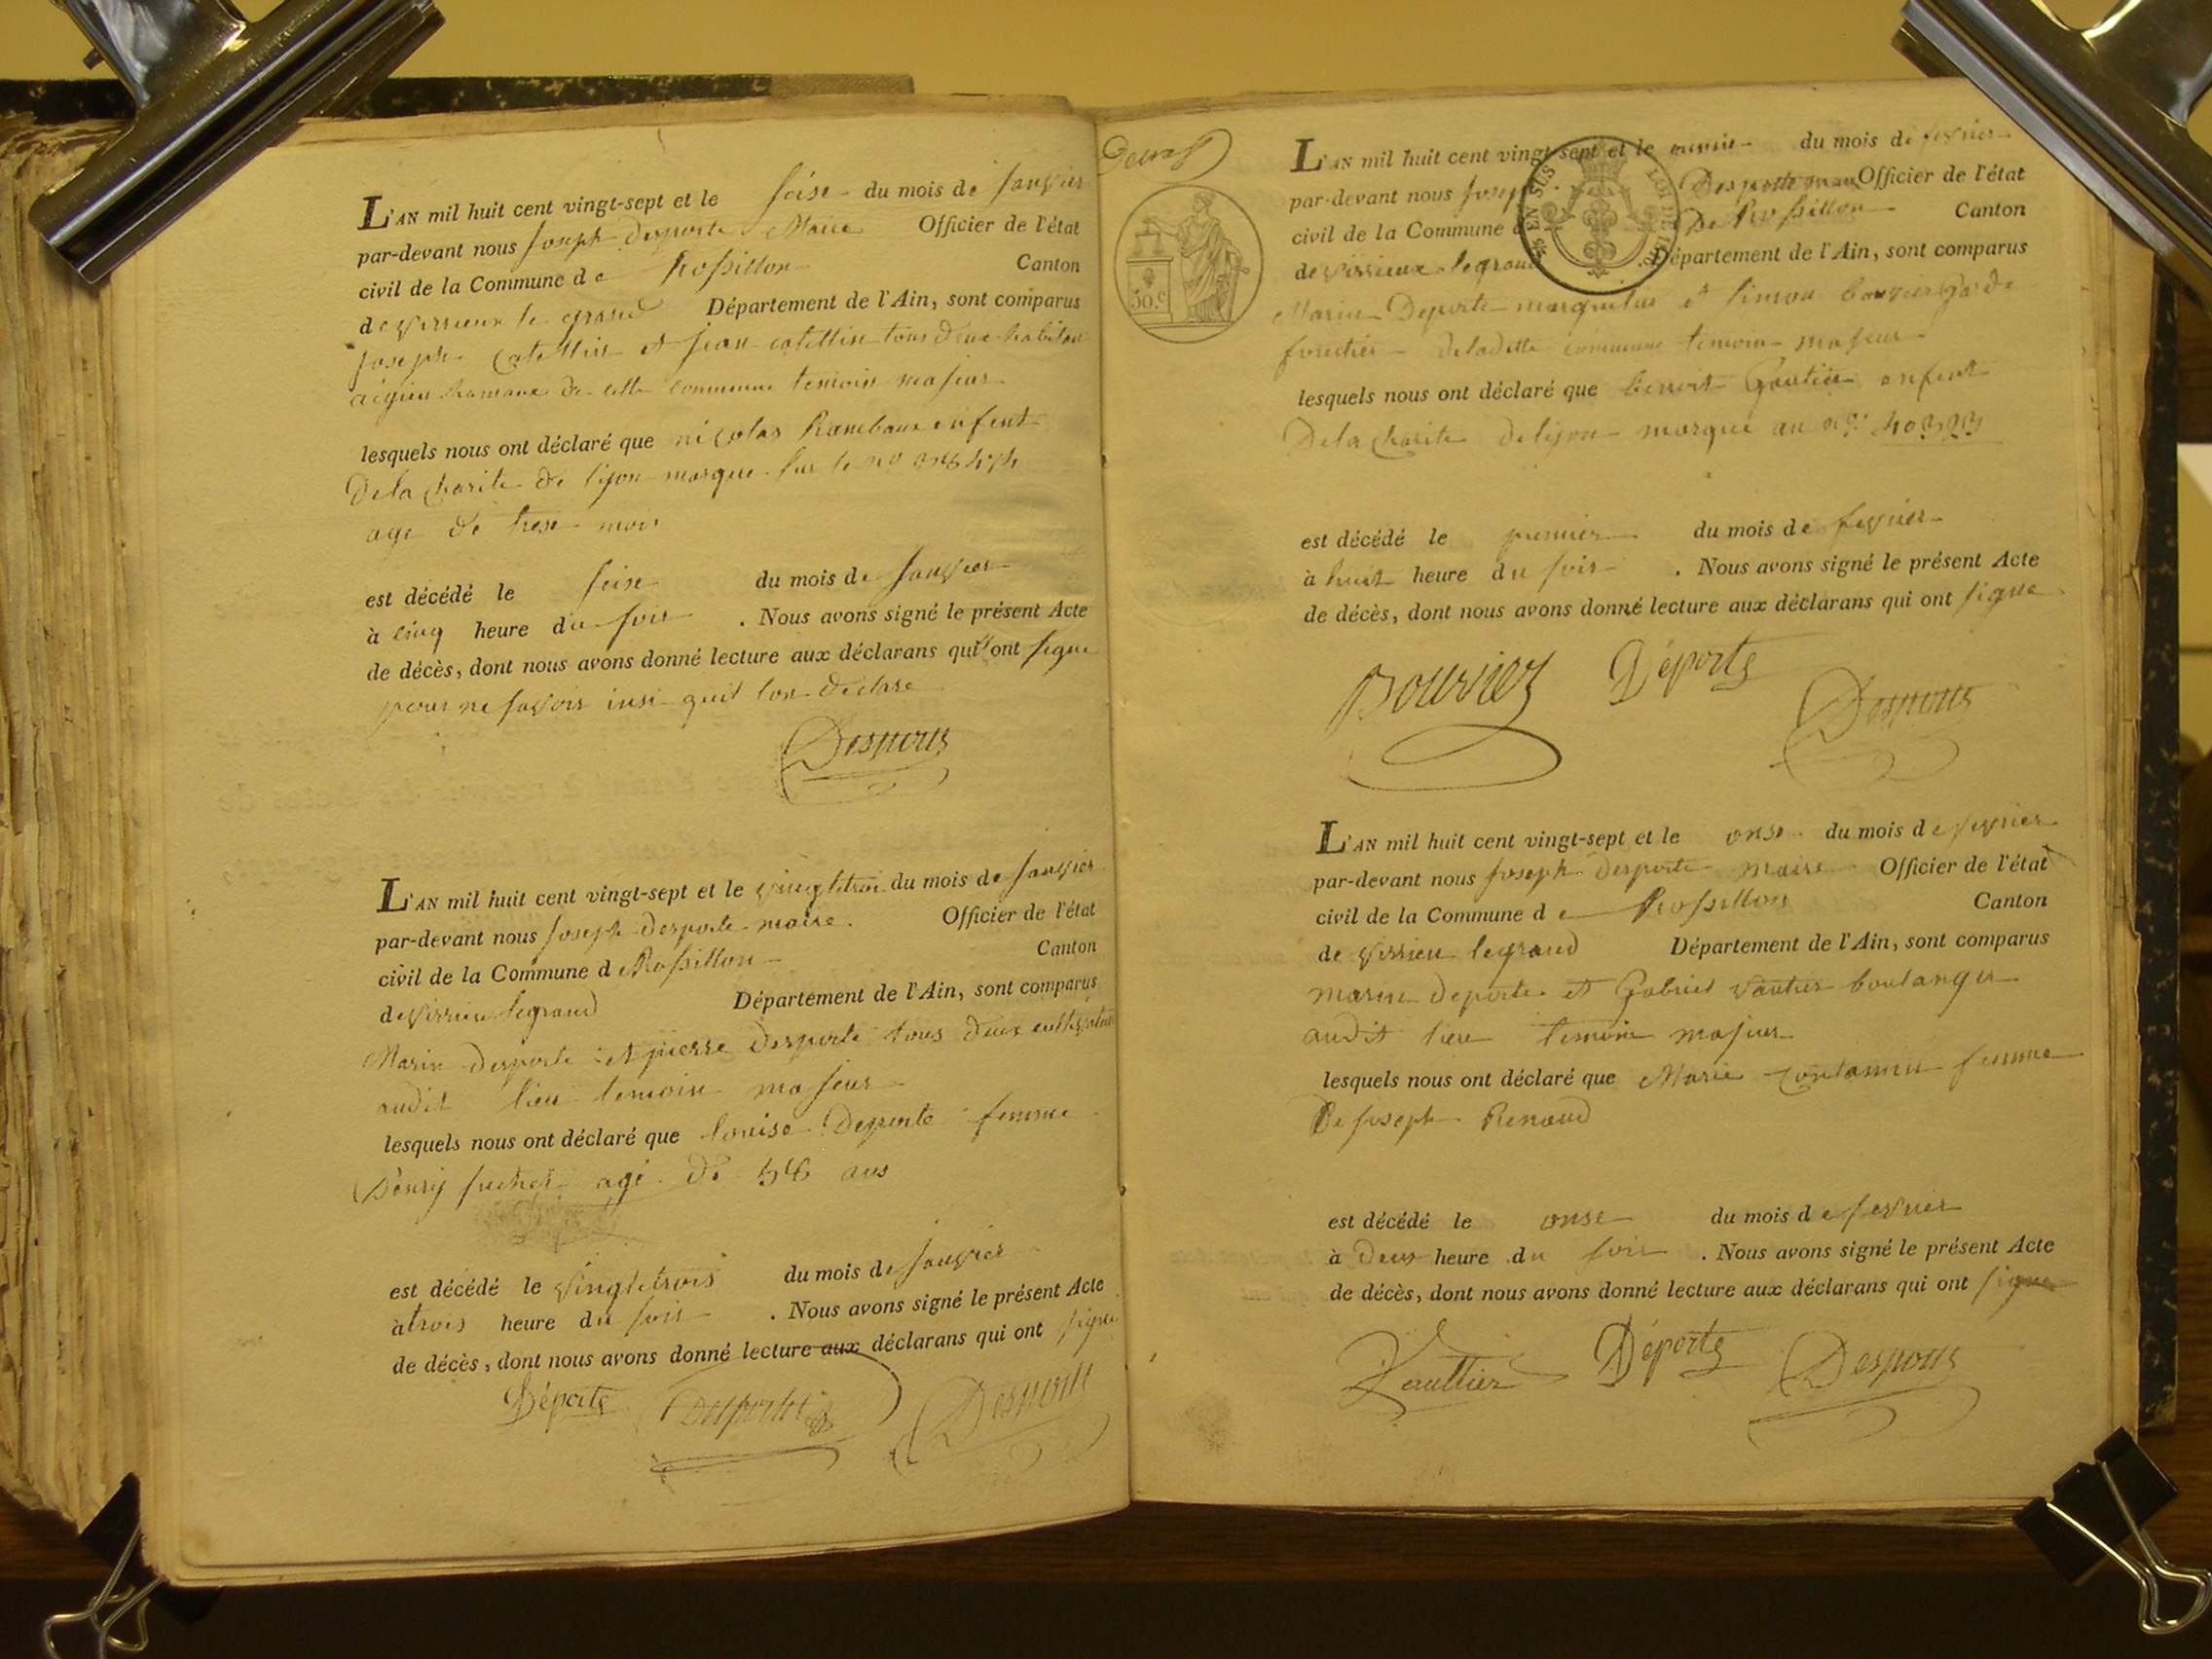 L'AN mil huit cent vingt-sept et le seise du mois de janvier
par-devant nous joseph desporte Maire Officier de l'état
civil de la Commune de Rossillon Canton
de virrieux le grand Département de l'Ain, sont comparus
joseph Catellin et jean catellin tous deux habitan
de cette commune temoin majeur
lesquels nous ont déclaré que nicolas Rambaux enfent
De la charite de lijon marque sur le nº
age de trese mois
est décédé le seise du mois de janvier
à cinq heure du soir . Nous avons signé le présent Acte
de décès, dont nous avons donné lecture aux déclarans qui ont signe
pour ne savoir insi quil lon declare
Desporte
L'AN mil huit cent vingt-sept et le vingtetrois du mois de janvier
par-devant nous joseph desporte maire. Officier de l'état
civil de la Commune de Rossillon Canton
de virrieu legrand Département de l'Ain, sont comparus
Marin desporte et pierre desporte tous deux cultivateur
audit lieu temoin majeur
lesquels nous ont déclaré que louise Deporte femme
D'enrij juchet agé de 56 ans
est décédé le vingtetrois du mois de janvier
à trois heure du soir . Nous avons signé le présent Acte
de décès, dont nous avons donné lecture aux déclarans qui ont signe
Déporte Desportes Desporte
50.c
EN SUS LOI DE
L'AN mil huit cent vingt-sept et le du mois de fevrier
par-devant nous josep Desporte maire Officier de l'état
civil de la Commune De Rossillon Canton
de virrieux legrand Département de l'Ain, sont comparus
Marin Deporte et simon bouvier garde
forestier de ladette commune temoin majeur
lesquels nous ont déclaré que benoit Gautier enfent
De la charite de lijon marqué au nº
est décédé le premier du mois de fevrier
à huit heure du soir . Nous avons signé le présent Acte
de décès, dont nous avons donné lecture aux déclarans qui ont signe
Bouvier Déporte Desporte
L'AN mil huit cent vingt-sept et le onse du mois de fevrier
par-devant nous joseph desporte maire Officier de l'état
civil de la Commune de Rossillon Canton
de virrieu legrand Département de l'Ain, sont comparus
marin deporte et Gabriel vautier boulanger
audit lieu temoin majeur
lesquels nous ont déclaré que Marie Contamin femme
De joseph Renaud
est décédé le onse du mois de fevrier
à deux heure du soir . Nous avons signé le présent Acte
de décès, dont nous avons donné lecture aux déclarans qui ont signe
Vauttier Déporte Desporte